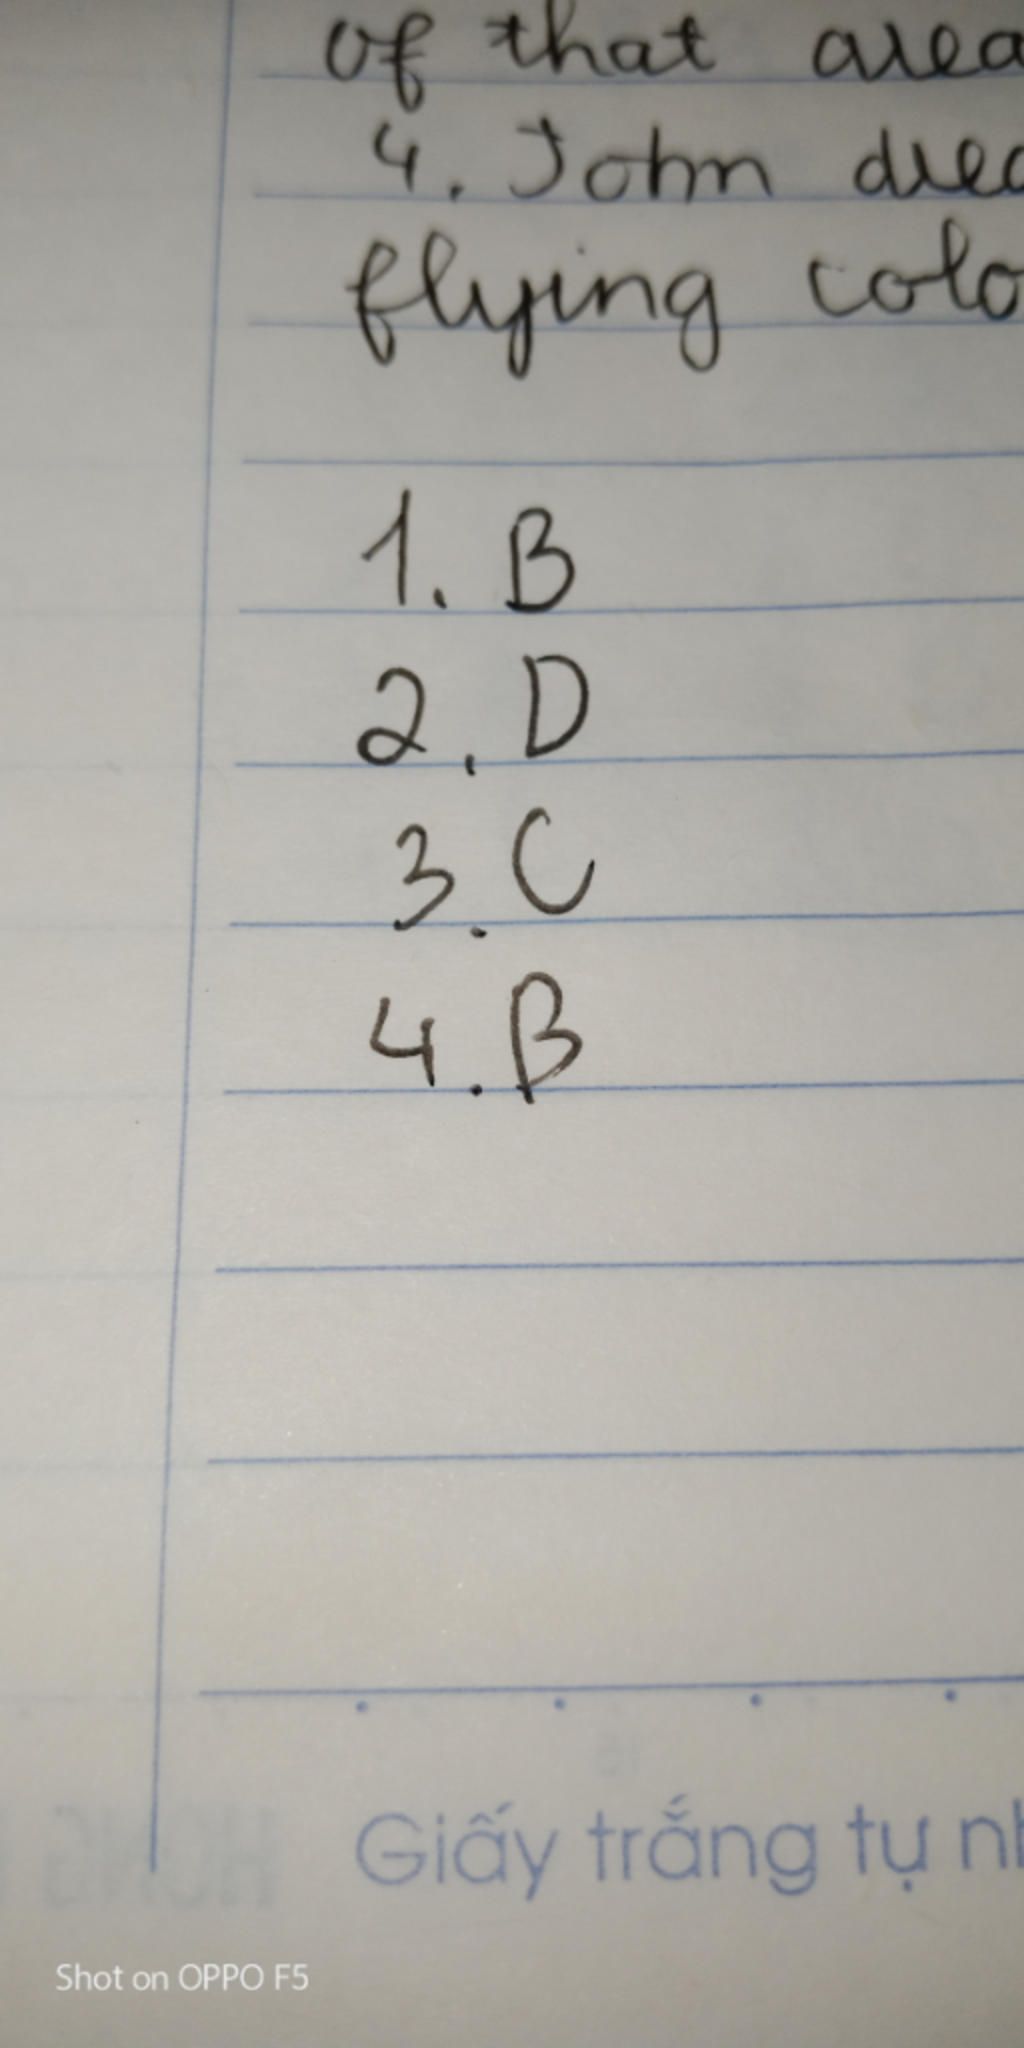 of that area
4. John
flying
1. B
2. D
3. C
4. B
Giấy trắng tự
Shot on OPPO F5